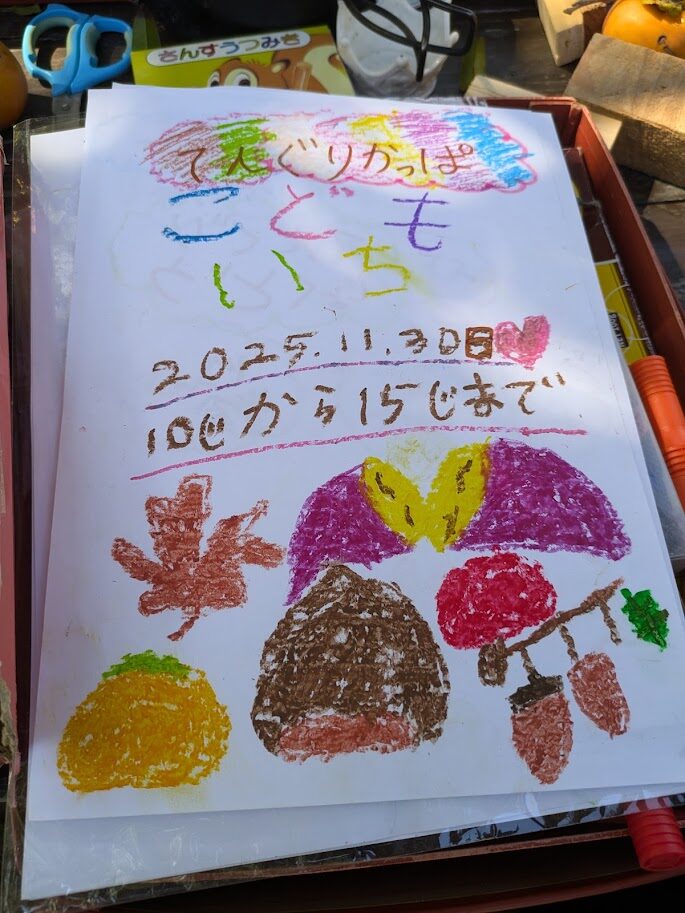 さんすうつみき
てんぐりかっぱ
こども
いち
2025.11.30日
10じから15じまで